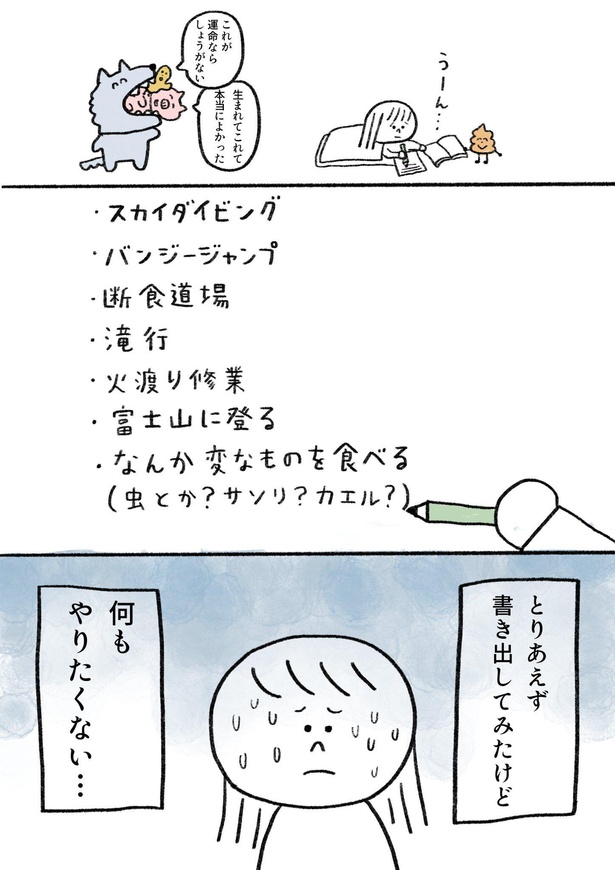 これが
運命なら
しょうがない
生まれてこれて
本当によかった
うーん…
・スカイダイビング
・バンジージャンプ
・断食道場
・滝行
・火渡り修業
・富士山に登る
・なんか変なものを食べる
(虫とか?サソリ?カエル?)
とりあえず
書き出してみたけど
何も
やりたくない…